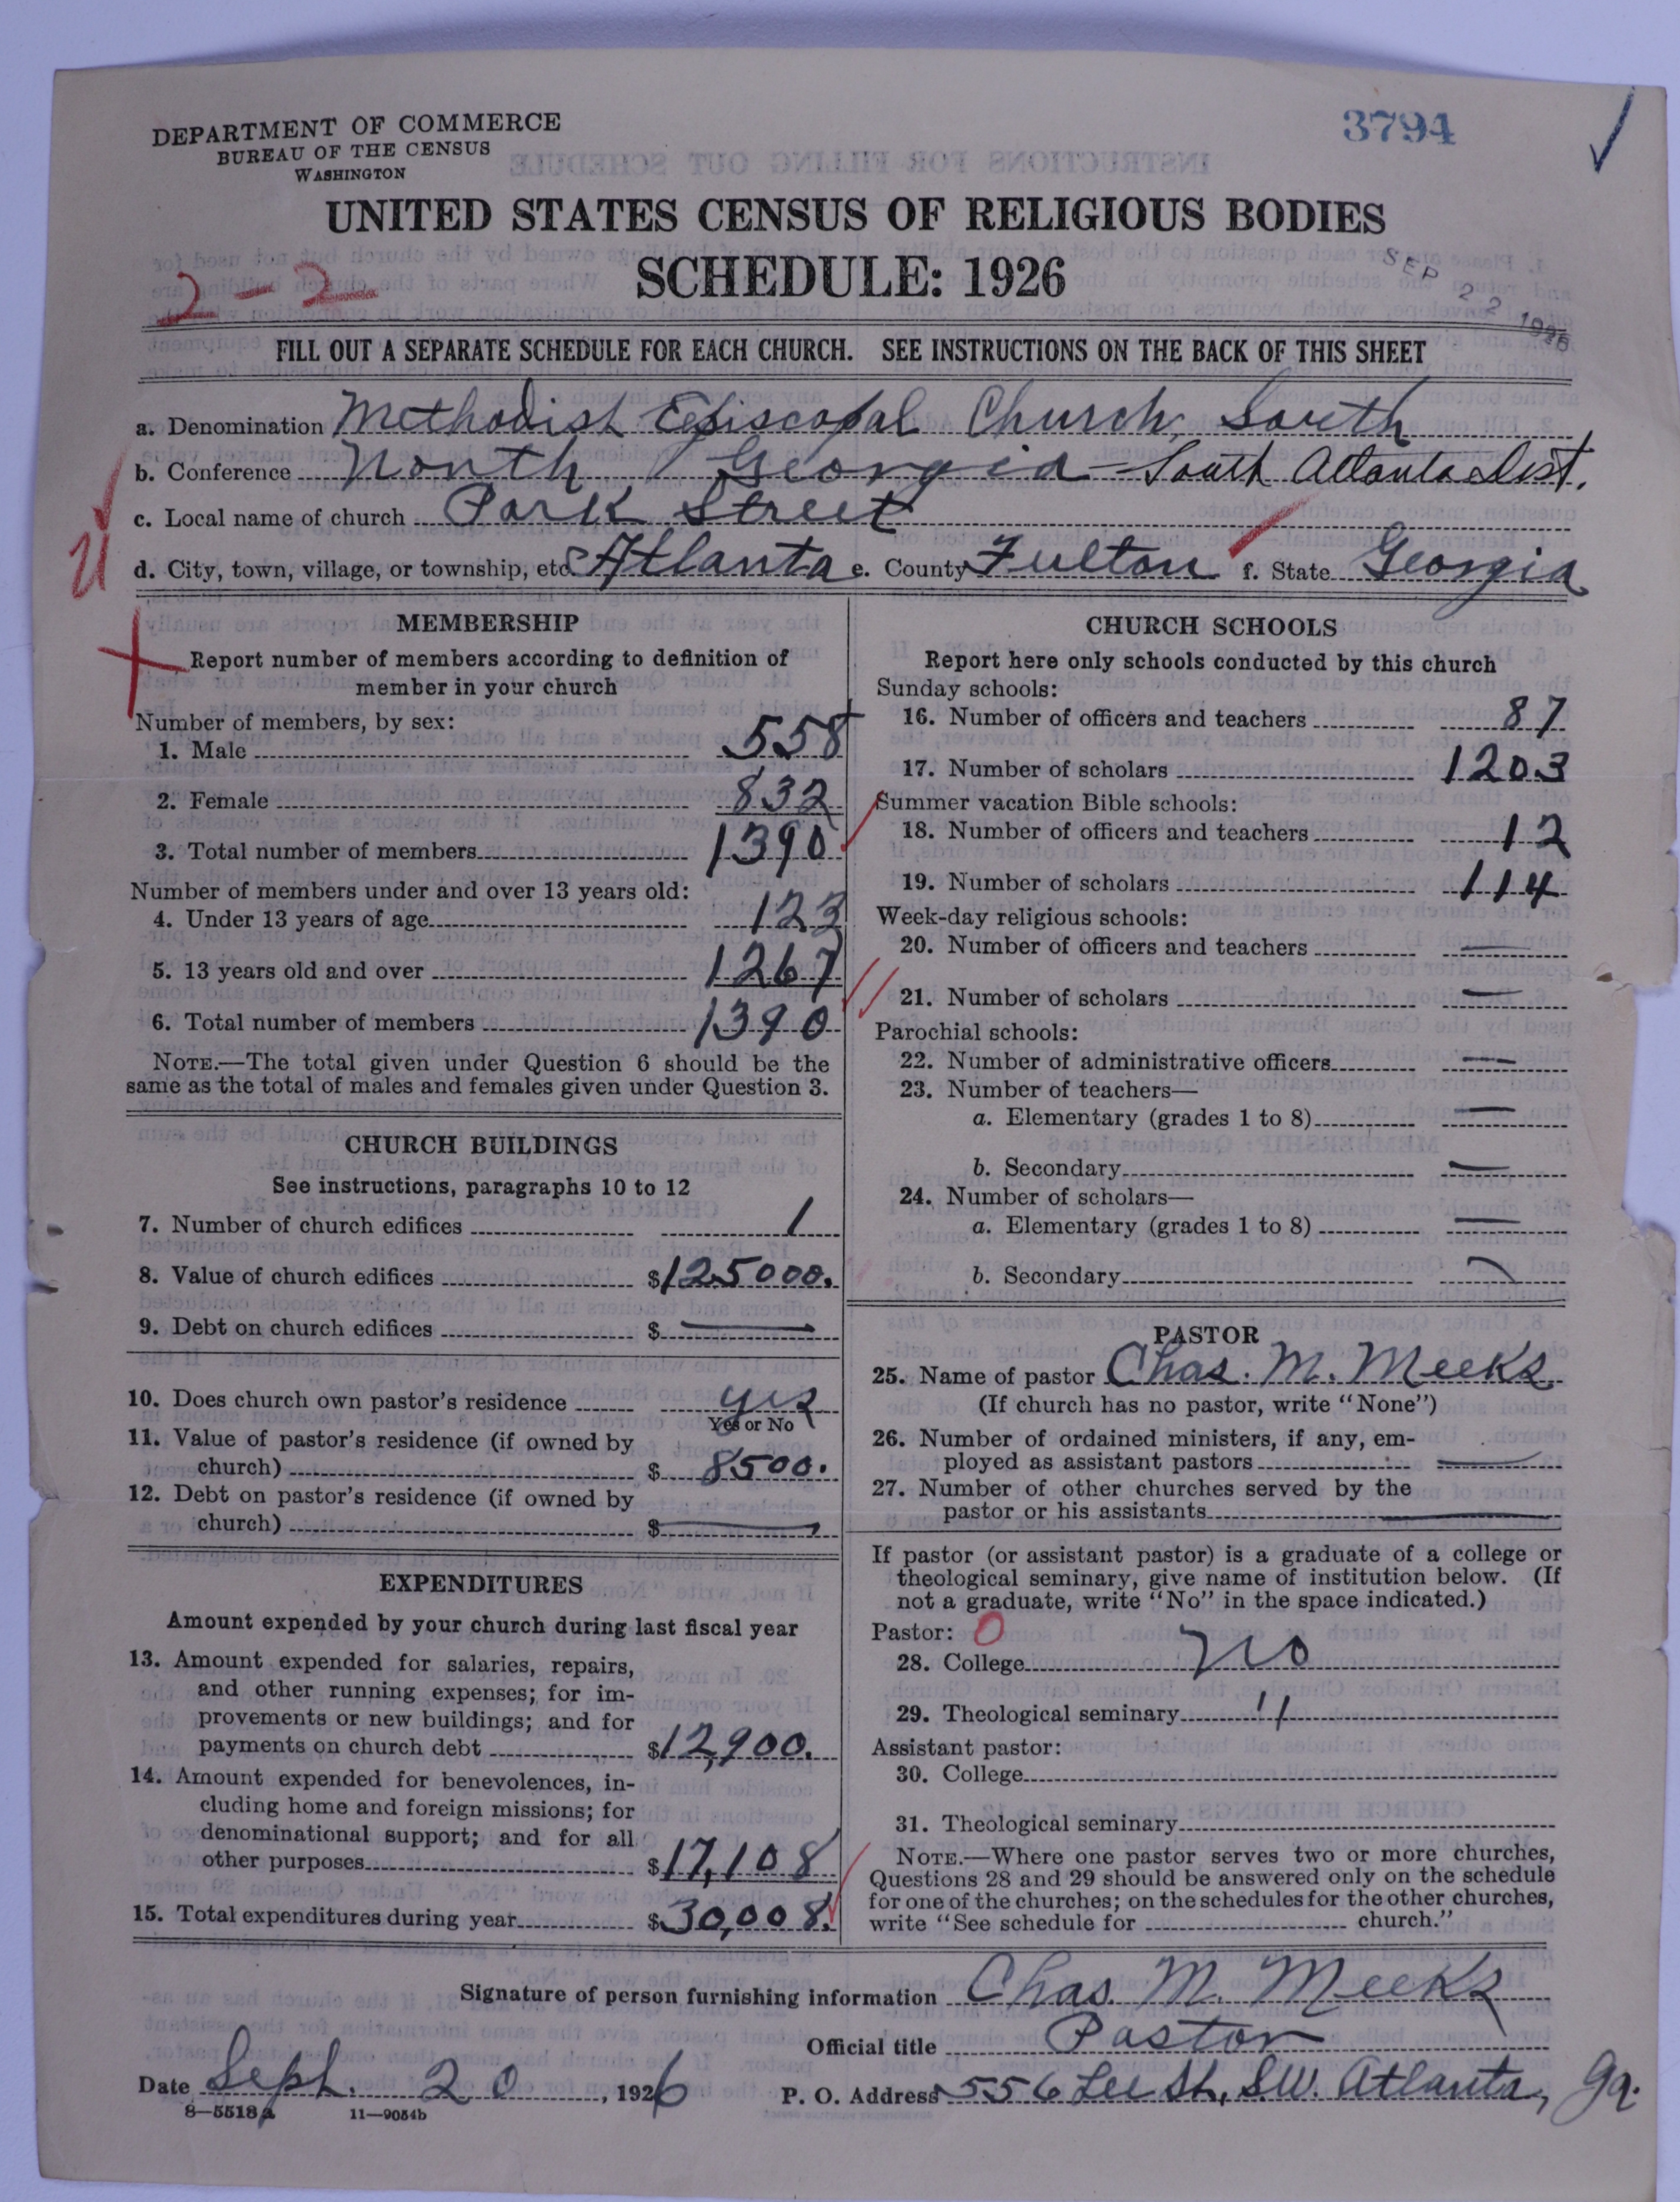 3794
DEPARTMENT OF COMMERCE
BUREAU OF THE CENSUS
WASHINGTON
UNITED STATES CENSUS OF RELIGIOUS BODIES
SCHEDULE: 1926
2-2
SEP 22 1926
FILL OUT A SEPARATE SCHEDULE FOR EACH CHURCH. SEE INSTRUCTIONS ON THE BACK OF THIS SHEET
a. Denomination Methodist Episcopal Church, South
b. Conference North Georgia - South Atlanta Dist.
c. Local name of church Park Street
d. City, town, village, or township, etc. Atlanta e. County Fulton f. State Georgia
MEMBERSHIP
Report number of members according to definition of
member in your church
Number of members, by sex:
1. Male 558
2. Female 832
3. Total number of members 1390
Number of members under and over 13 years old:
4. Under 13 years of age 123
5. 13 years old and over 1267
6. Total number of members 1390
NOTE.—The total given under Question 6 should be the
same as the total of males and females given under Question 3.
CHURCH BUILDINGS
See instructions, paragraphs 10 to 12
7. Number of church edifices 1
8. Value of church edifices $125000.
9. Debt on church edifices $ —
10. Does church own pastor's residence yes
Yes or No
11. Value of pastor's residence (if owned by
church) $ 8500.
12. Debt on pastor's residence (if owned by
church) $ —
EXPENDITURES
Amount expended by your church during last fiscal year
13. Amount expended for salaries, repairs,
and other running expenses; for im-
provements or new buildings; and for
payments on church debt $12,900.
14. Amount expended for benevolences, in-
cluding home and foreign missions; for
denominational support; and for all
other purposes $17,108
15. Total expenditures during year $30,008.
CHURCH SCHOOLS
Report here only schools conducted by this church
Sunday schools:
16. Number of officers and teachers 87
17. Number of scholars 1203
Summer vacation Bible schools:
18. Number of officers and teachers 12
19. Number of scholars 114
Week-day religious schools:
20. Number of officers and teachers —
21. Number of scholars —
Parochial schools:
22. Number of administrative officers —
23. Number of teachers—
a. Elementary (grades 1 to 8) —
b. Secondary —
24. Number of scholars—
a. Elementary (grades 1 to 8) —
b. Secondary —
PASTOR
25. Name of pastor Chas. M. Meeks
(If church has no pastor, write "None")
26. Number of ordained ministers, if any, em-
ployed as assistant pastors —
27. Number of other churches served by the
pastor or his assistants —
If pastor (or assistant pastor) is a graduate of a college or
theological seminary, give name of institution below. (If
not a graduate, write "No" in the space indicated.)
Pastor: 0
28. College no
29. Theological seminary "
Assistant pastor:
30. College
31. Theological seminary
NOTE.—Where one pastor serves two or more churches,
Questions 28 and 29 should be answered only on the schedule
for one of the churches; on the schedules for the other churches,
write "See schedule for church."
Signature of person furnishing information Chas. M. Meeks
Official title Pastor
Date Sept. 20, 1926 P. O. Address 556 Lee St, S.W. Atlanta, Ga.
8—5518a 11—9054b